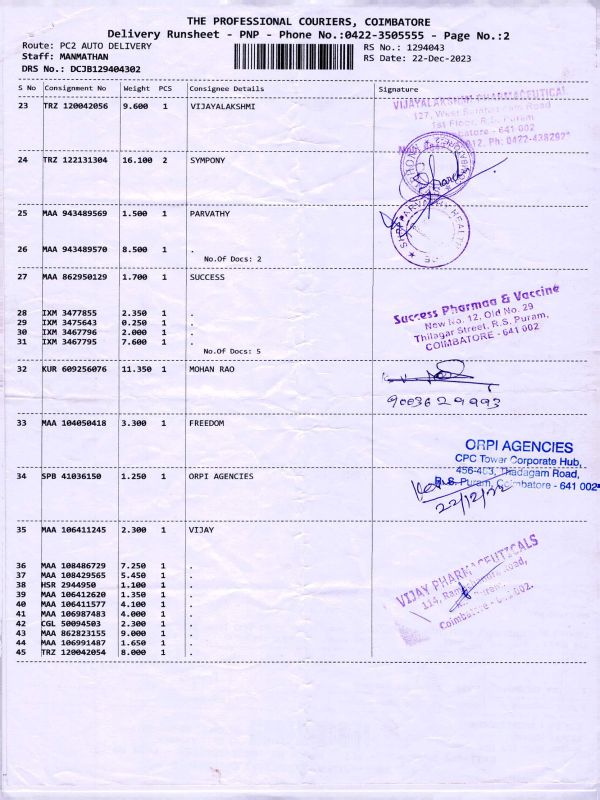 THE PROFESSIONAL COURIERS, COIMBATORE
Delivery Runsheet - PNP - Phone No.:0422-3505555 - Page No.:2
Route: PC2 AUTO DELIVERY
RS No.: 1294043
Staff: MANMATHAN
RS Date: 22-Dec-2023
DRS No.: DCJB129404302
S No Consignment No Weight PCS Consignee Details Signature
23 TRZ 120042056 9.600 1 VIJAYALAKSHMI
VIJAYALAKSHMI PHARMACEUTICAL
1st Floor, R.S. Puram
Coimbatore - 641 002
24 TRZ 122131304 16.100 2 SYMPONY
25 MAA 943489569 1.500 1 PARVATHY
26 MAA 943489570 8.500 1 .
No.Of Docs: 2
27 MAA 862950129 1.700 1 SUCCESS
Success Pharmaa & Vaccine
New No. 12, Old No. 29
Thilagar Street, R.S. Puram,
COIMBATORE - 641 002
28 IXM 3477855 2.350 1 .
29 IXM 3475643 0.250 1 .
30 IXM 3467796 2.000 1 .
31 IXM 3467795 7.600 1 .
No.Of Docs: 5
32 KUR 609256076 11.350 1 MOHAN RAO
9003629993
33 MAA 104050418 3.300 1 FREEDOM
ORPI AGENCIES
CPC Tower Corporate Hub,
Thadagam Road,
R.S. Puram, Coimbatore - 641 002
34 SPB 41036150 1.250 1 ORPI AGENCIES
35 MAA 106411245 2.300 1 VIJAY
VIJAY PHARMACEUTICALS
Coimbatore - 641 002.
36 MAA 108486729 7.250 1 .
37 MAA 108429565 5.450 1 .
38 HSR 2944950 1.100 1 .
39 MAA 106412620 1.350 1 .
40 MAA 106411577 4.100 1 .
41 MAA 106987483 4.000 1 .
42 CGL 50094503 2.300 1 .
43 MAA 862823155 9.000 1 .
44 MAA 106991487 1.650 1 .
45 TRZ 120042054 8.000 1 .